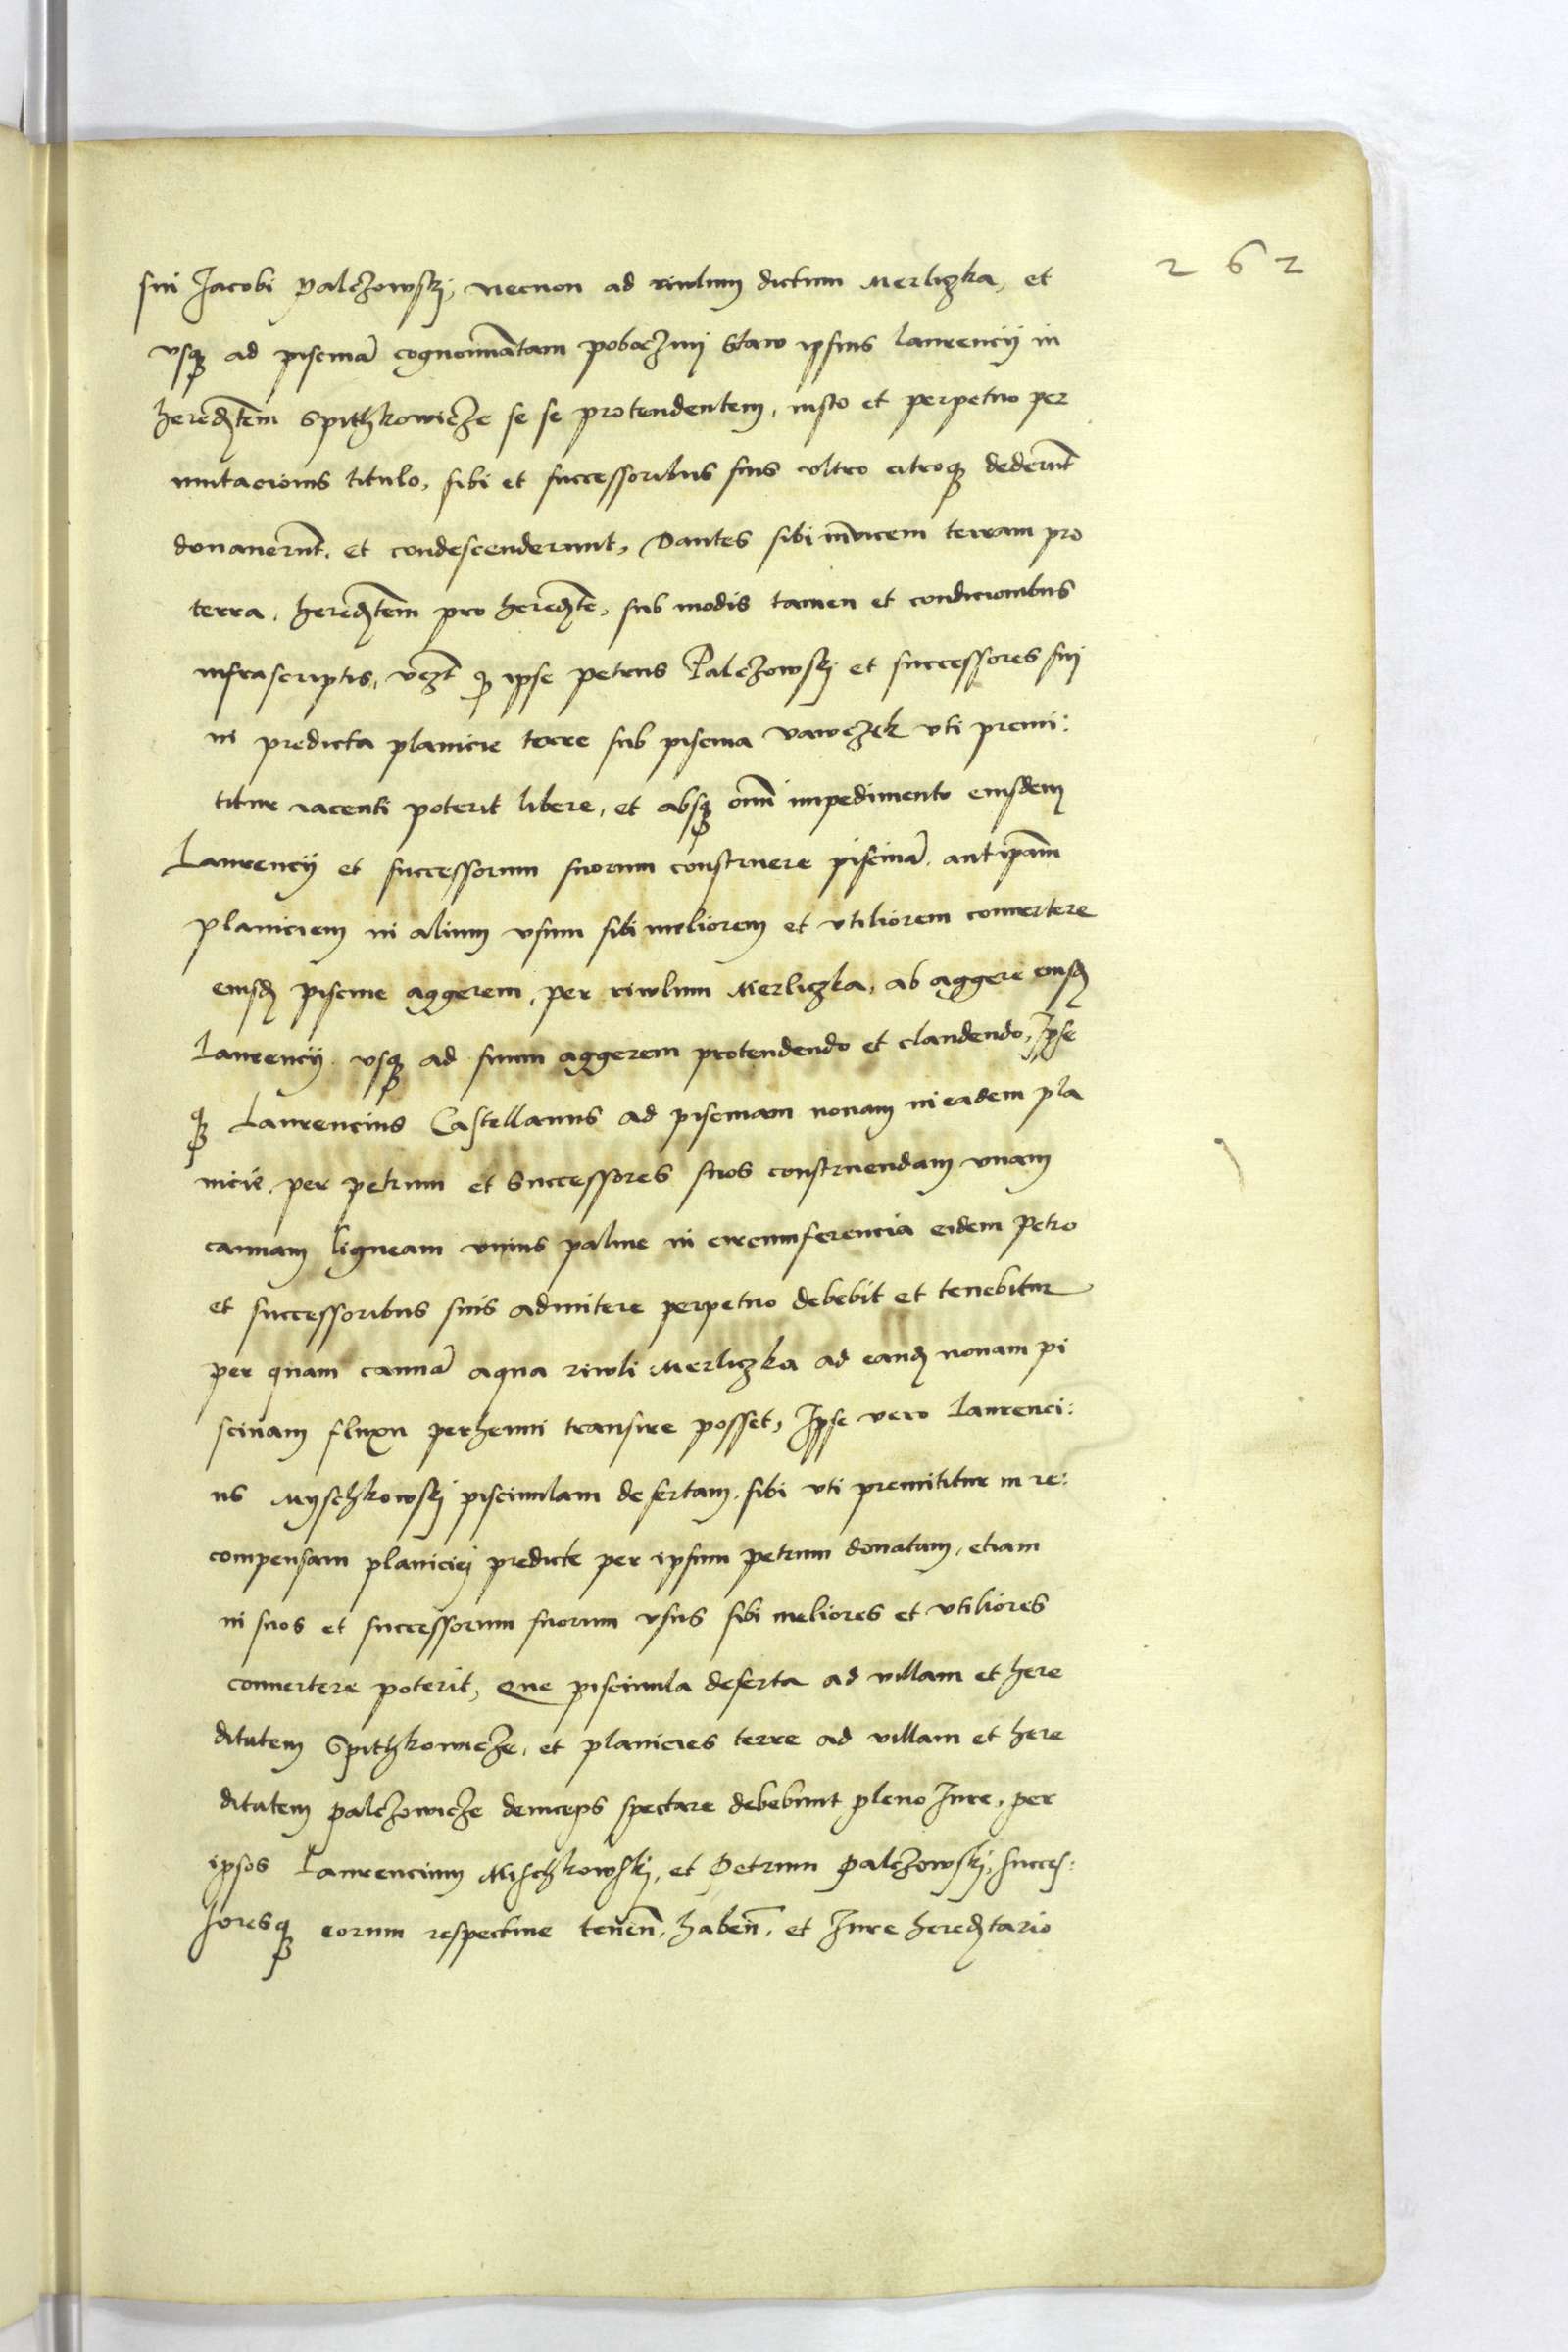 262
sui Jacobi Palczowskj, necnon ad riwlum dictum Merliczka, et
vsq3 ad piscinā cognoīatam poboczmj Staw ipsius laurencij in
heredtem Spithkowicze se se protendentem, iusto et perpetuo per
mutacionis titulo, sibi et successoribus suis vltro citroq3 dederūt
donauerūt, et condescenderunt, Dantes sibi inuicem terram pro
terra, heredtem pro heredte, sub modis tamen et condicionibus
infrascriptis, vczt q3 ipse petrus Palczowskj et successores sui
in predicta planicie terre sub piscina Vawczek vti premi:
titur iacenti poterit libere, et absq3 oīni impedimento eiusdem
Laurencij et successorum suorum construere piscinā, aut ipsam
planiciem in alium vsum sibi meliorem et vtiliorem conuertere
eiusd piscine aggerem, per riwlum Merliczka, ab aggere eiusd
Laurencij vsq3 ad suum aggerem protendendo et claudendo, Ipse
q3 Laurencius Castellanus ad piscinam nouam in eadem pla
nicie per petrum et Successores suos construendam vnam
cannam ligneam vnius palme in circumferencia eidem Petro
et successoribus suis admitere perpetuo debebit et tenebitur
per quam cannā aqua riwli Merliczka ad eand nouam pi
scinam fluxu perhenni transire posset, Ipse vero Laurenci:
us Myschkowskj pisciculam desertam sibi vti premititur in re:
compensam planiciej predicte per ipsum petrum donatam, etiam
in suos et successorum suorum vsus sibi meliores et vtiliores
conuertere poterit, Que piscinula deserta ad villam et here
ditatem Spithkowicze, et planicies terre ad villam et here
ditatem palczowicze deinceps spectare debebunt pleno Jure, per
ipsos Laurencium Mischkowskj, et Petrum Palczowskj, succes:
soresq3 eorum respectiue tenēn, habēn, et Jure heredtario